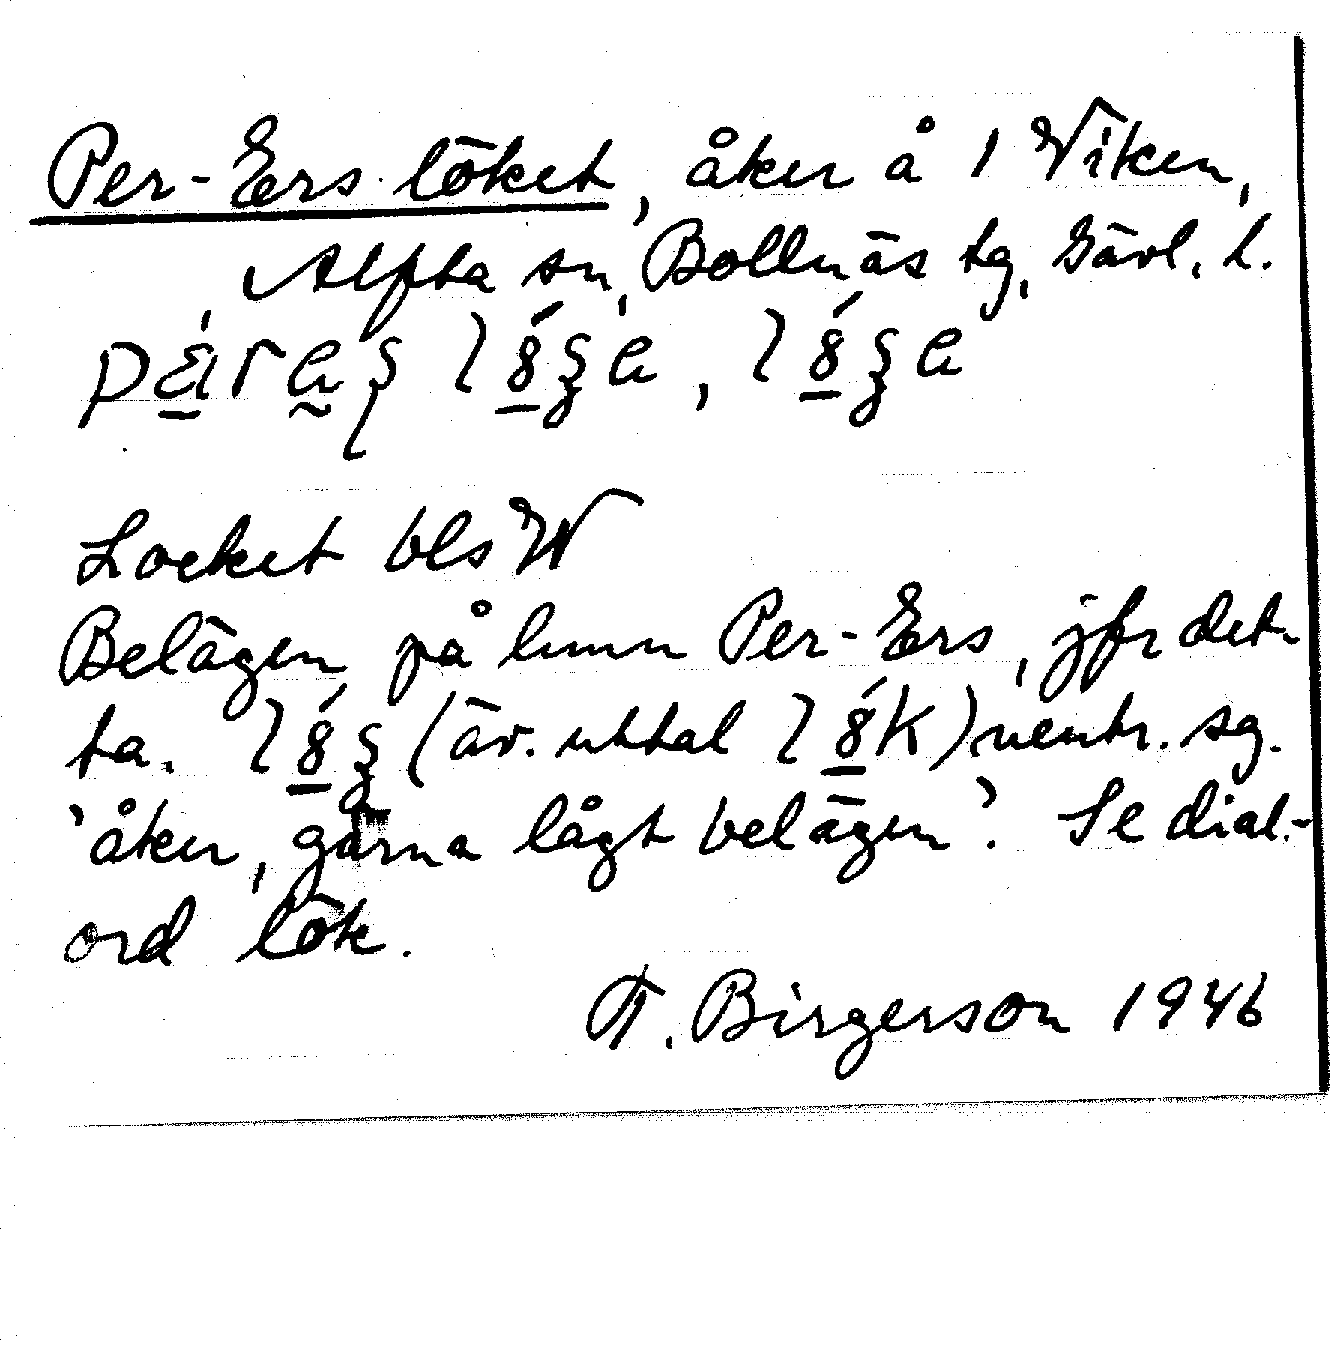 Per-Ers löket, åker å 1 Viken,
Alfta sn, Bollnäs tg, Gävl. l.
Locket bls W
Belägen på hmn Per-Ers, jfr det-
ta. (äv. uttal) neutr. sg.
'åker, gärna lågt belägen'. Se dial.-
ord lök.
T. Birgerson 1946